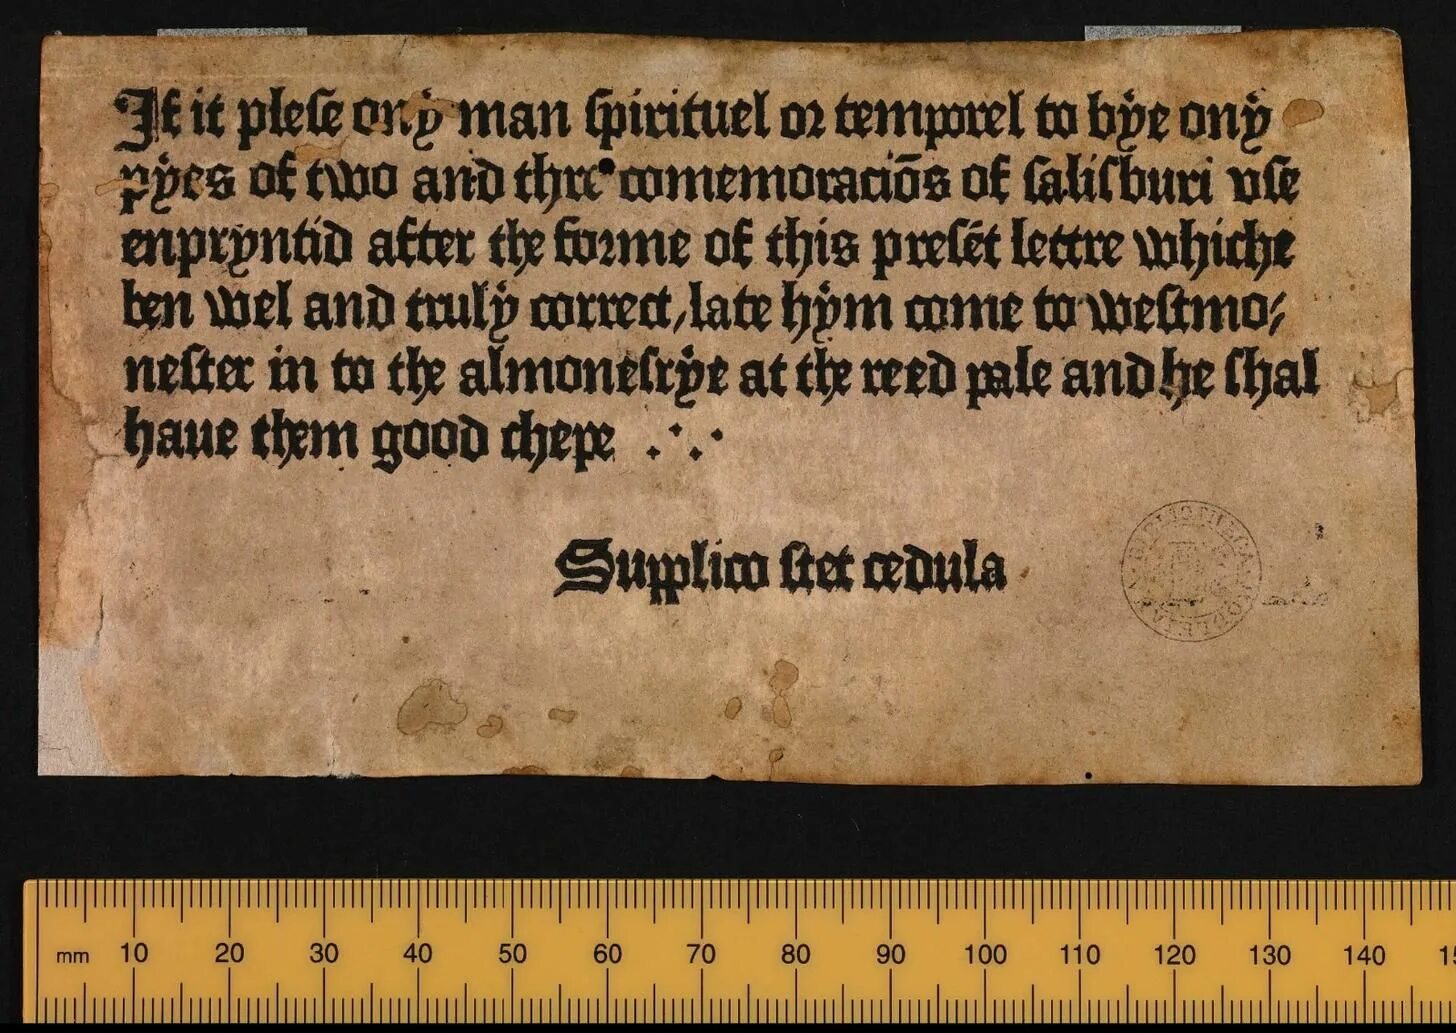 If it plese ony man spirituel or temporel to bye ony
pyes of two and thre comemoraciōs of salisburi vse
enpryntid after the forme of this presēt lettre whiche
ben wel and truly correct, late hym come to westmo⸗
nester in to the almonesrye at the reed pale and he shal
haue them good chepe
Supplico stet cedula
BIBLIOTHECA BODLEIANA
mm 10 20 30 40 50 60 70 80 90 100 110 120 130 140